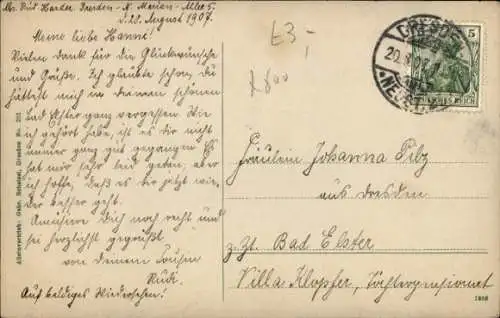 Abs. Rud. Harder Dresden-N. Marien-Allee 5.
D. 20. August 1907.
Meine liebe Hanni!
Vielen Dank für die Glückwünsche
und Grüße. Ich glaubte schon, du
hättest mich in deinem schönen
Bad Elster ganz vergessen. Wie
ich gehört habe, ist es dir nicht
immer ganz gut gegangen. Es
hat mir sehr leid getan, aber
ich hoffe, daß es dir jetzt wie-
der besser geht.
Amüsiere Dich noch recht und
sei herzlichst gegrüßt
von deinem Cousin
Rudi.
Auf baldiges Wiedersehen!
£3-
DRESDEN
20.8.07
NEUST.
5
DEUTSCHES REICH
Fräulein Johanna Pilz
aus Dresden
z. Zt. Bad Elster
Villa Klopfer, Töchterpensionat
Alleinvertrieb: Gebr. Dresden No.